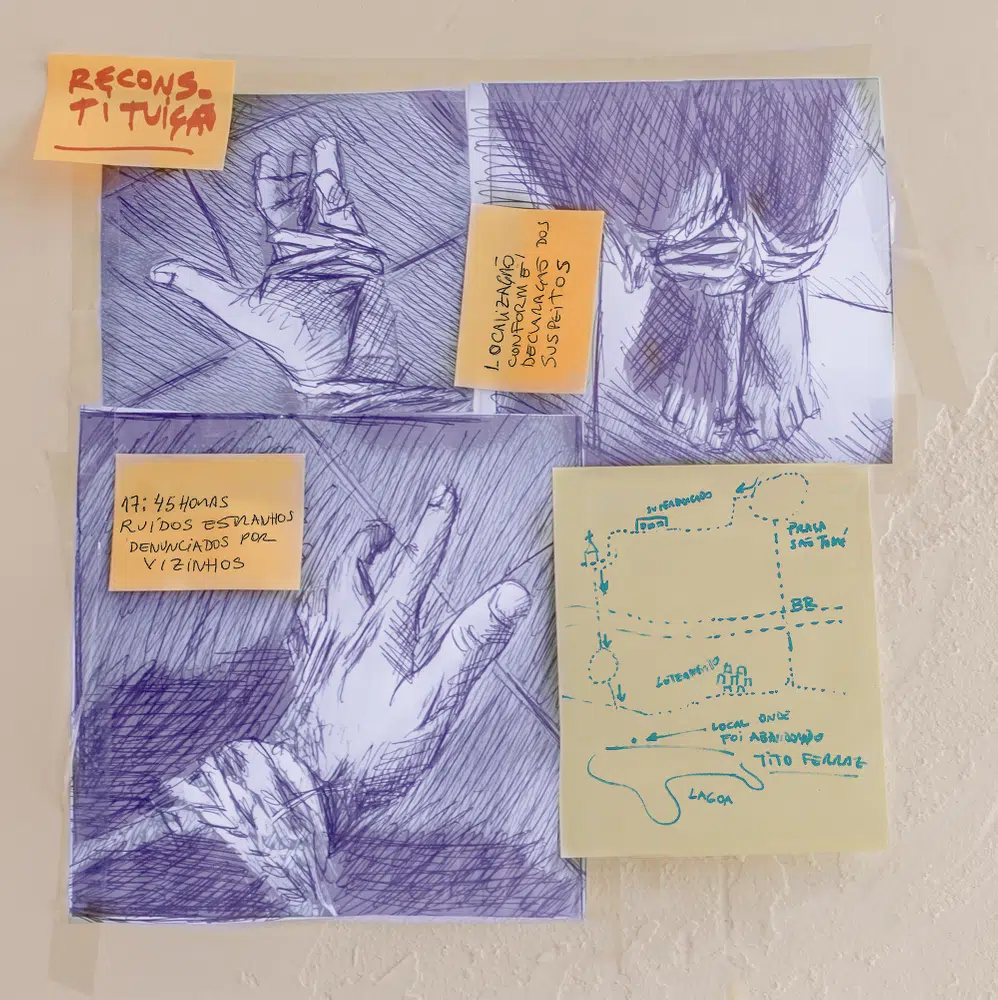 RECONS.
TITUIÇÃ
LOCALIZAÇÃO
CONFORME
DECLARAÇÃO DOS
SUSPEITOS
17:45 HORAS
RUÍDOS ESTRANHOS
DENUNCIADOS POR
VIZINHOS
SUPERMERCADO
PRAÇA
SÃO TOMÉ
BR
LOTEAMENTO
LOCAL ONDE
FOI ABANDONADO
TITO FERRAZ
LAGOA